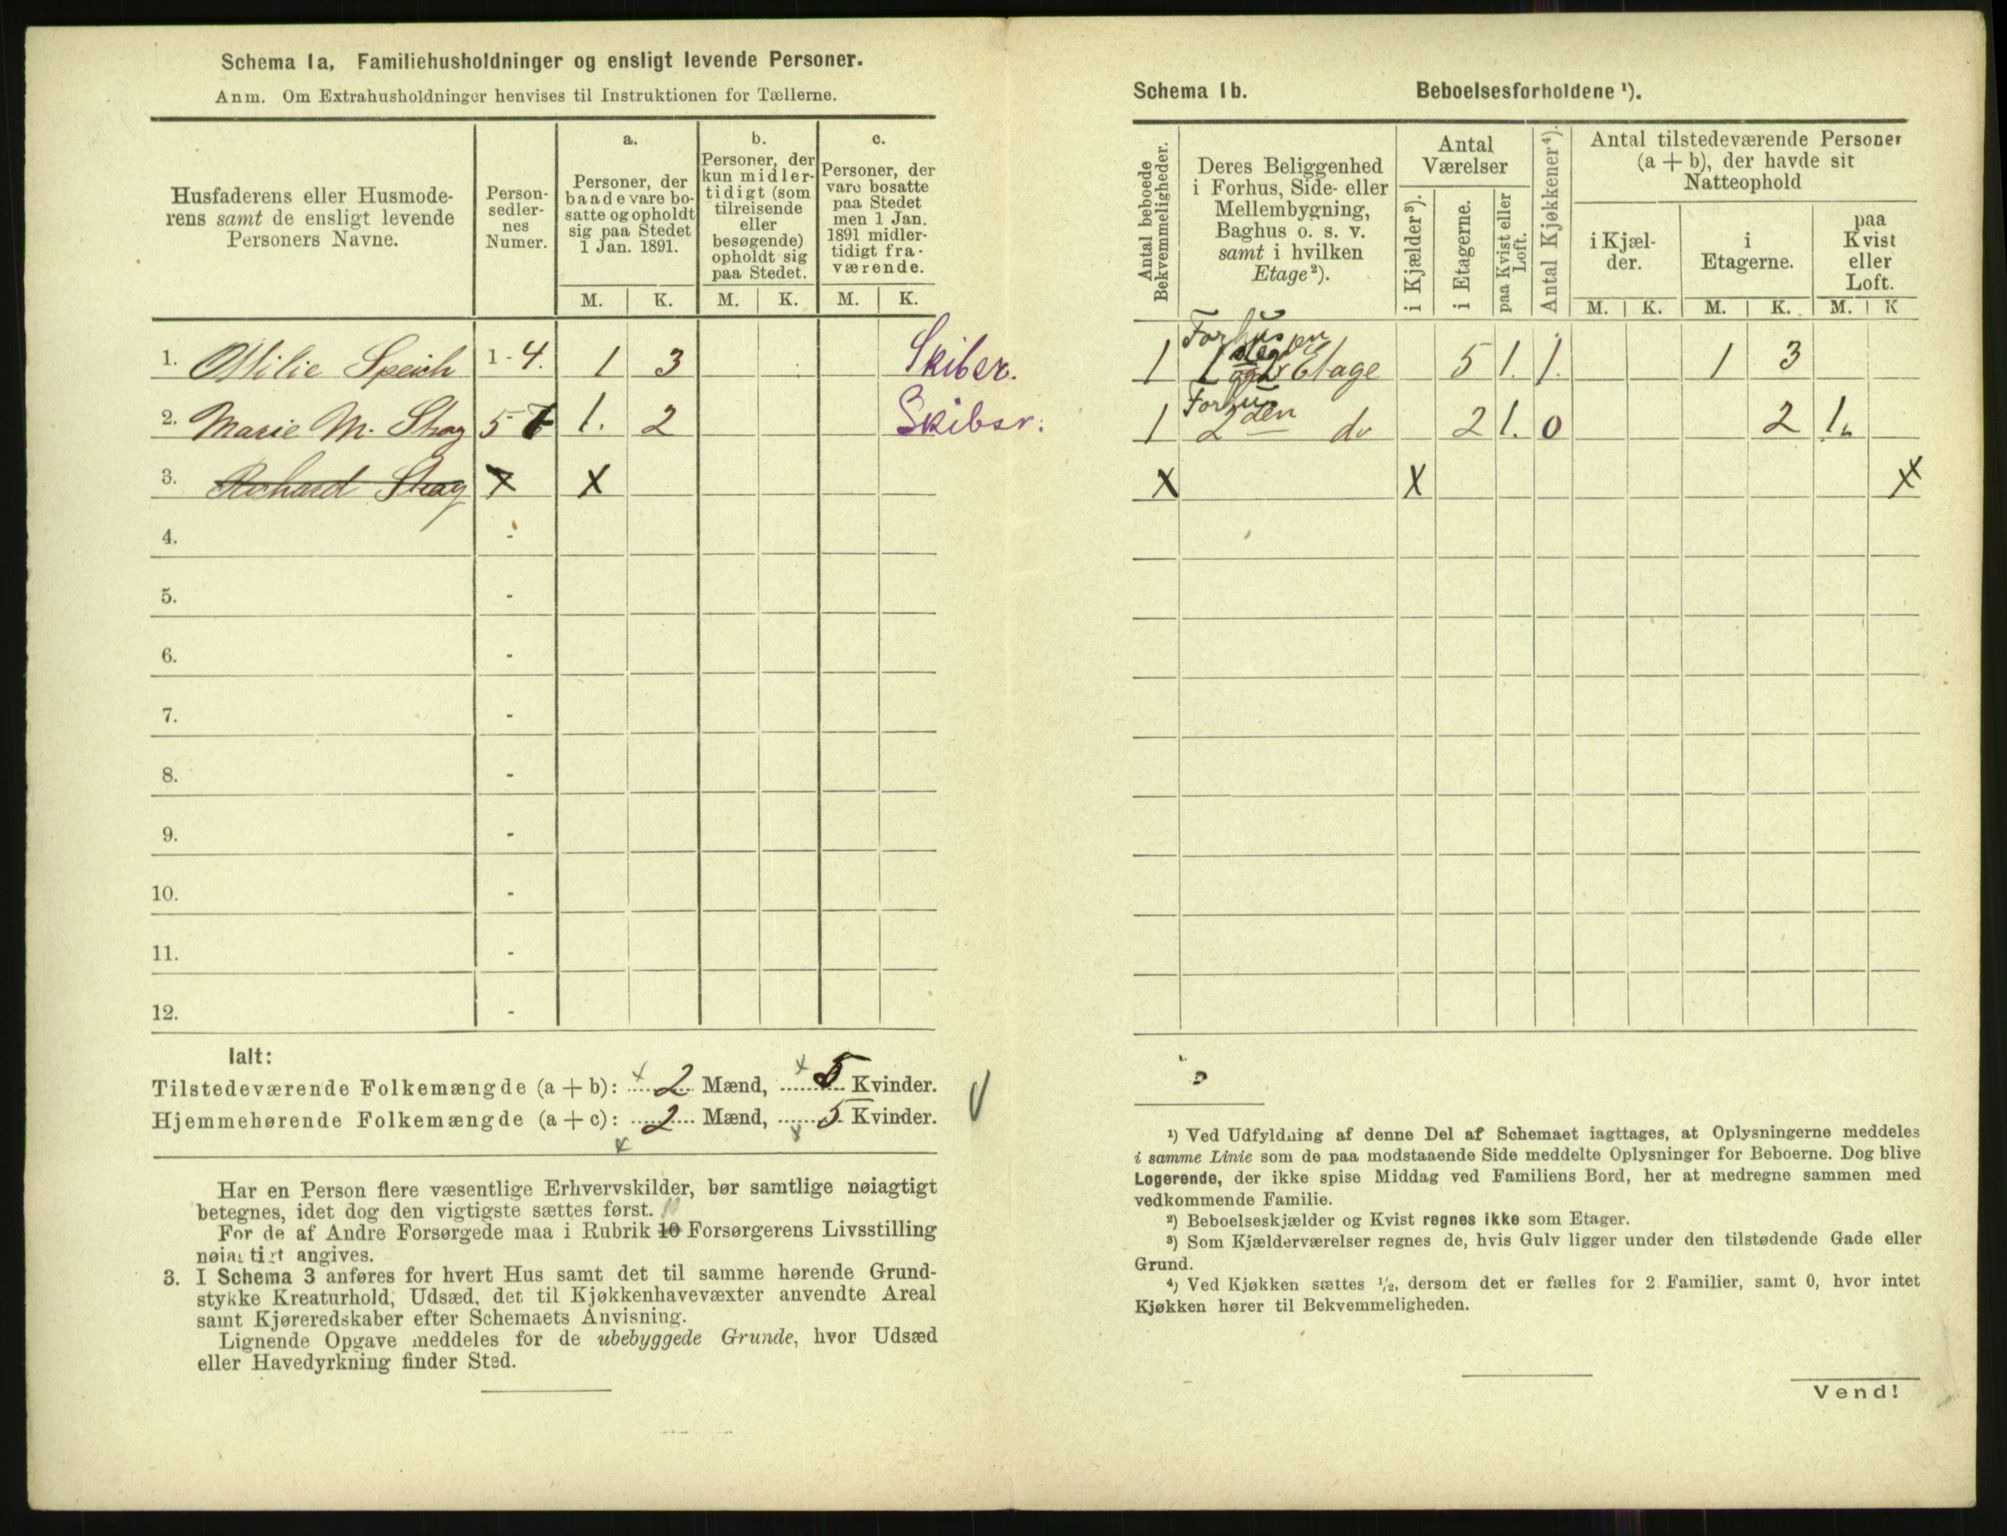 Schema 1a, Familiehusholdninger og ensligt levende Personer.
Anm. Om Extrahusholdninger henvises til Instruktionen for Tællerne.
Husfaderens eller Husmode-
rens samt de ensligt levende
Personers Navne.
Person-
sedler-
nes
Numer.
a.
Personer, der
baade vare bo-
satte og opholdt
sig paa Stedet
1 Jan. 1891.
b.
Personer, der
kun midler-
tidigt (som
tilreisende
eller
besøgende)
opholdt sig
paa Stedet.
c.
Personer, der
vare bosatte
paa Stedet
men 1 Jan.
1891 midler-
tidigt fra-
værende.
M. K. M. K. M. K.
1. Ottilie Speich 1 - 4. 1 3 Skiber.
2. Marie M. Skog 5 - 7 1. 2 Skibsr.
3. Richard Skog 7 X
4. -
5. -
6. -
7. -
8. -
9. -
10. -
11. -
12. -
Ialt:
Tilstedeværende Folkemængde (a + b): x 2 Mænd, x 5 Kvinder.
Hjemmehørende Folkemængde (a + c): 2 Mænd, 5 Kvinder.
Har en Person flere væsentlige Erhvervskilder, bør samtlige nøiagtigt
betegnes, idet dog den vigtigste sættes først.
For de af Andre Forsørgede maa i Rubrik 10 Forsørgerens Livsstilling
nøiagtigt angives.
3. I Schema 3 anføres for hvert Hus samt det til samme hørende Grund-
stykke Kreaturhold, Udsæd, det til Kjøkkenhavevæxter anvendte Areal
samt Kjøreredskaber efter Schemaets Anvisning.
Lignende Opgave meddeles for de ubebyggede Grunde, hvor Udsæd
eller Havedyrkning finder Sted.
Schema 1b. Beboelsesforholdene ¹).
Antal beboede
Bekvemmeligheder.
Deres Beliggenhed
i Forhus, Side- eller
Mellembygning,
Baghus o. s. v.
samt i hvilken
Etage²).
Antal
Værelser
i Kjælder³).
i Etagerne.
paa Kvist eller
Loft.
Antal Kjøkkener⁴).
Antal tilstedeværende Personer
(a + b), der havde sit
Natteophold
i Kjæl-
der.
i
Etagerne.
paa
Kvist
eller
Loft.
M. K. M. K. M. K
Forhus
1 1 Etage 5 1. 1. 1 3
Forhus
1 2den do 2 1. 0 2 1.
X X X
¹) Ved Udfyldning af denne Del af Schemaet iagttages, at Oplysningerne meddeles
i samme Linie som de paa modstaaende Side meddelte Oplysninger for Beboerne. Dog blive
Logerende, der ikke spise Middag ved Familiens Bord, her at medregne sammen med
vedkommende Familie.
²) Beboelseskjælder og Kvist regnes ikke som Etager.
³) Som Kjælderværelser regnes de, hvis Gulv ligger under den tilstødende Gade eller
Grund.
⁴) Ved Kjøkken sættes ¹/₂, dersom det er fælles for 2 Familier, samt 0, hvor intet
Kjøkken hører til Bekvemmeligheden.
Vend!